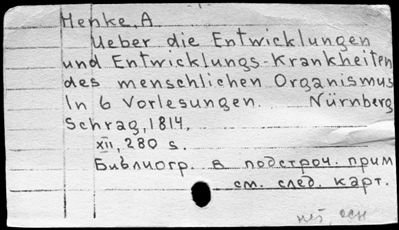 Henke, A
Ueber die Entwicklungen
und Entwicklungs-Krankheiten
des menschlichen Organismus
In 6 Vorlesungen. Nürnberg
Schrag, 1814.
XII, 280 s.
Библиогр. в подстроч. прим
см. след. карт.